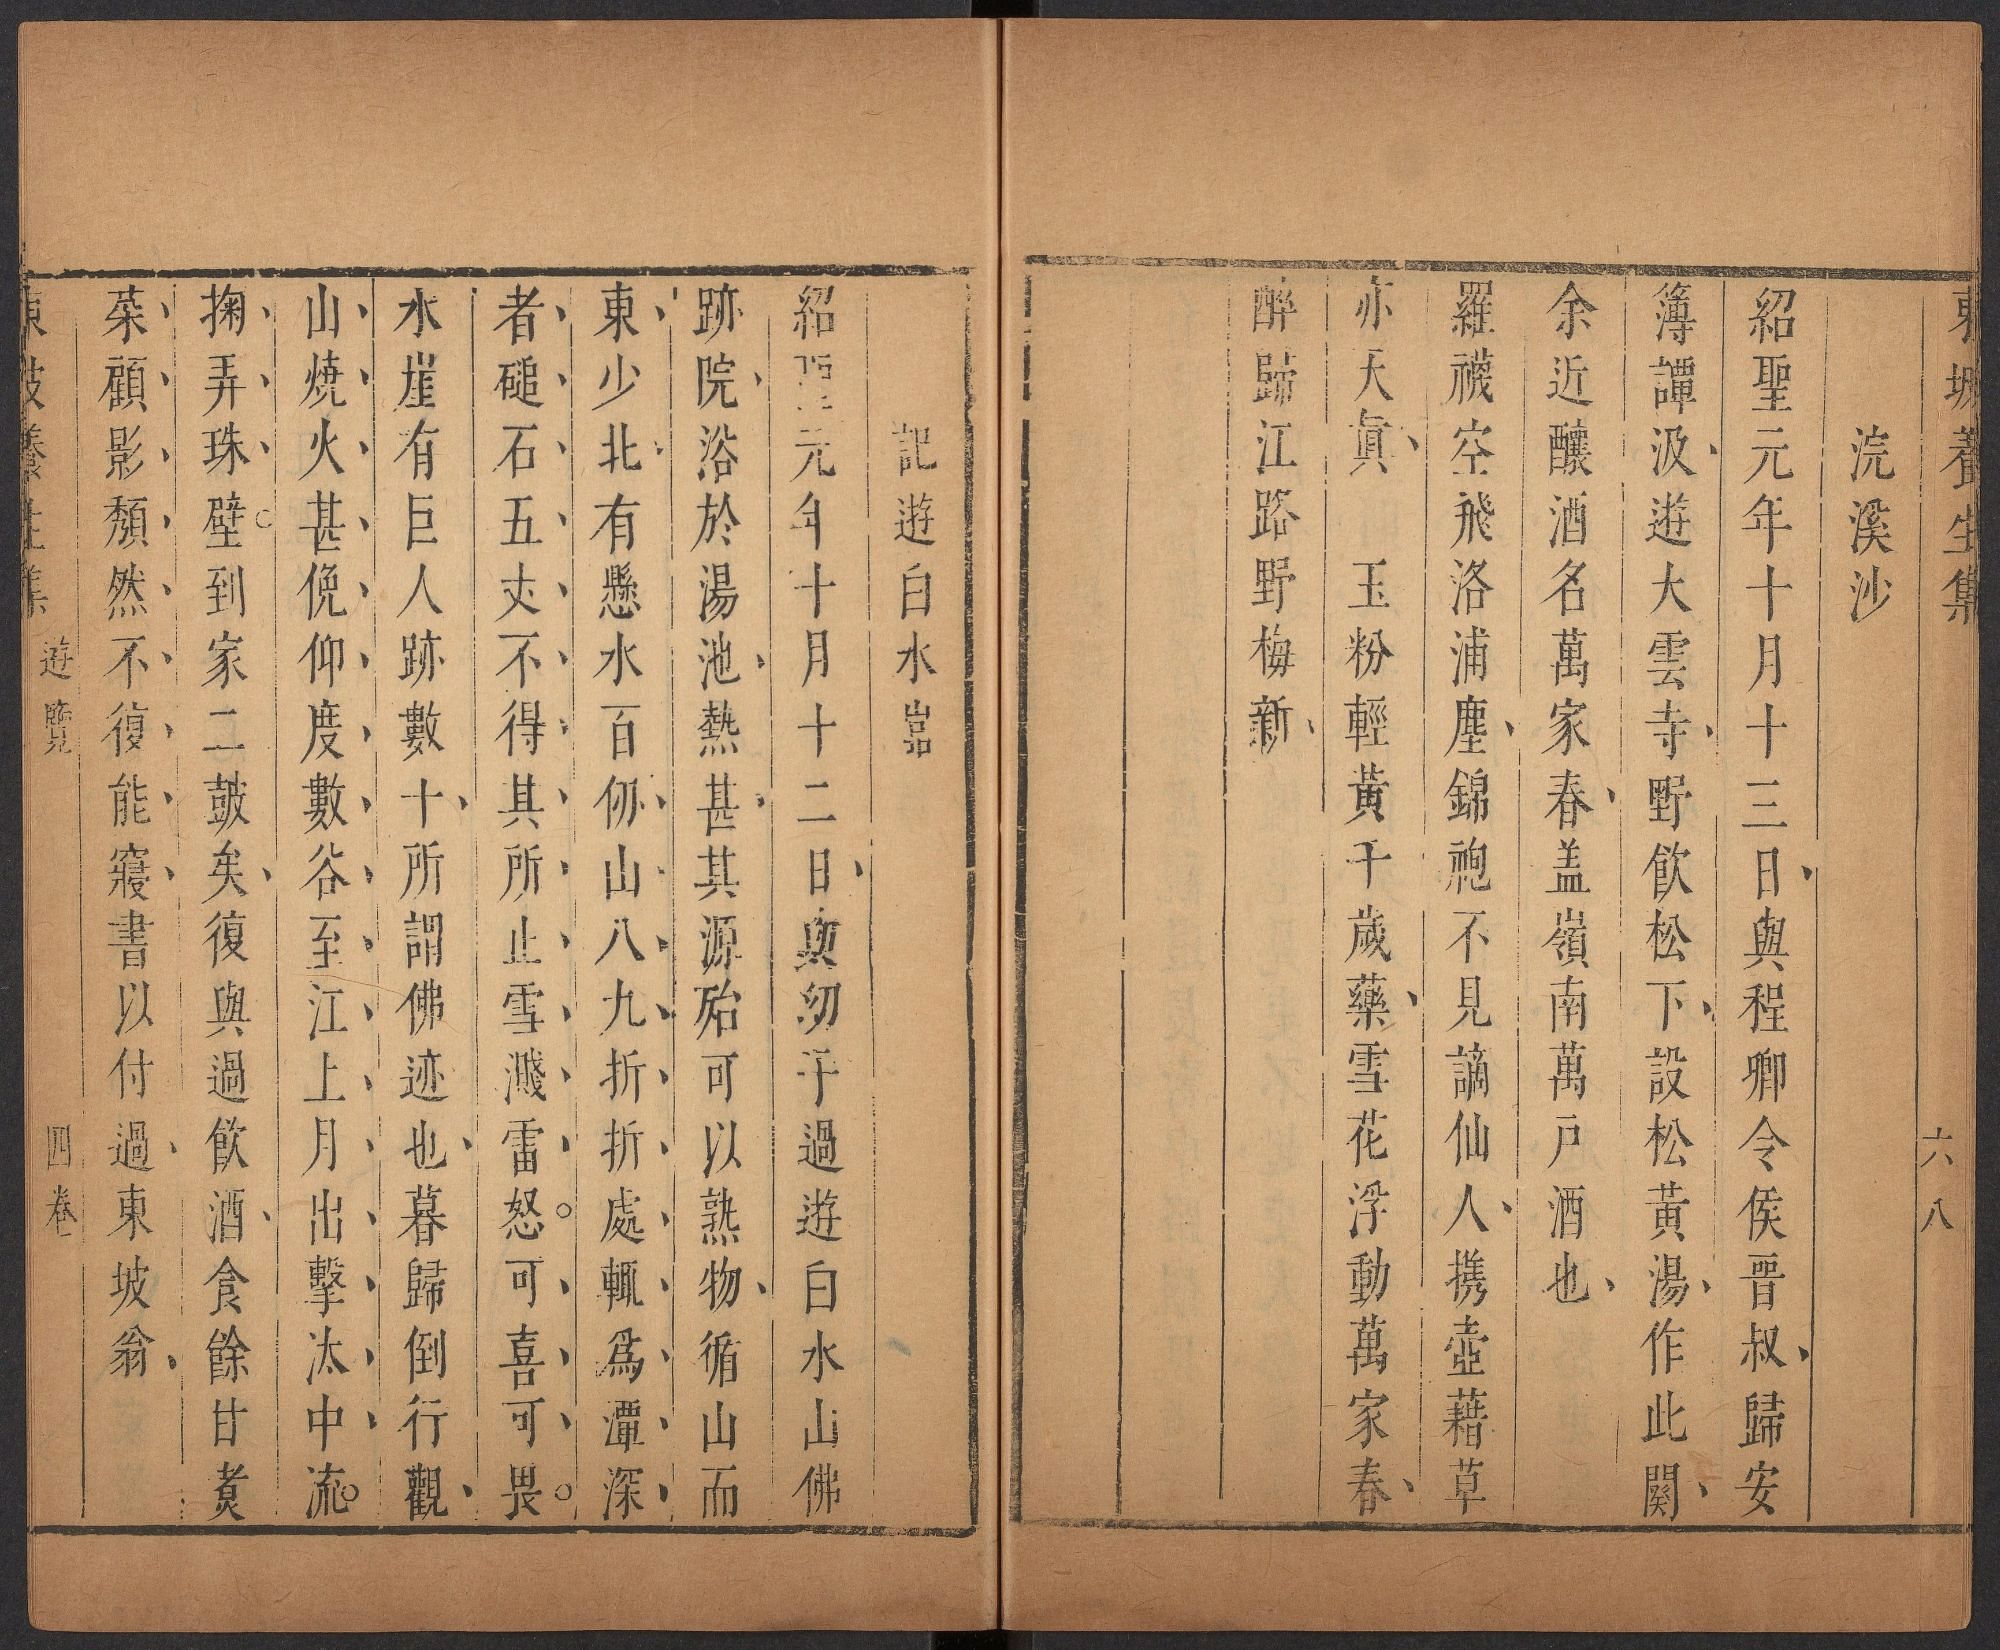 東坡養生集
六八
浣溪沙
紹聖元年十月十三日與程鄉令侯晋叔歸安
簿譚汲遊大雲寺野飲松下設松黄湯作此闋
余近釀酒名萬家春盖嶺南萬戸酒也
羅襪空飛洛浦塵錦袍不見謫仙人携壺藉草
亦天眞　玉粉輕黄千歲藥雪花浮動萬家春
醉歸江路野梅新
記遊白水嵓
紹聖元年十月十二日與幼子過遊白水山佛
跡院浴於湯池熱甚其源殆可以熟物循山而
東少北有懸水百仞山八九折折處輒爲潭深
者磓石五丈不得其所止雪濺雷怒可喜可畏
水崖有巨人跡數十所謂佛迹也暮歸倒行觀
山燒火甚俛仰度數谷至江上月出擊汰中流
掬弄珠璧到家二鼓矣復與過飲酒食餘甘煑
菜顧影頽然不復能寢書以付過東坡翁
東坡養生集
遊覽
四卷